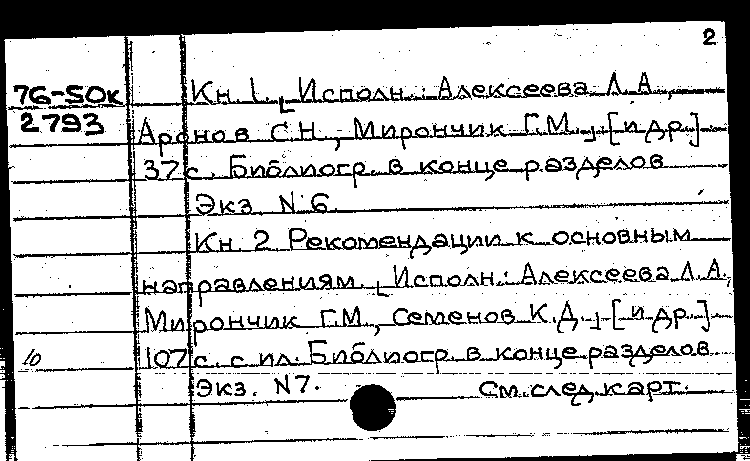 2
76-50к Кн. 1. [Исполн.: Алексеева Л.А.,
2793 Аронов С.Н., Мирончик Г.М.] [и др.]
37 с. Библиогр. в конце разделов
Экз. N 6.
Кн. 2 Рекомендации к основным
направлениям. [Исполн.: Алексеева Л.А.,
Мирончик Г.М., Семенов К.Д.] [и др.]
10 107 с. с ил. Библиогр. в конце разделов
Экз. N7. См. след. карт.